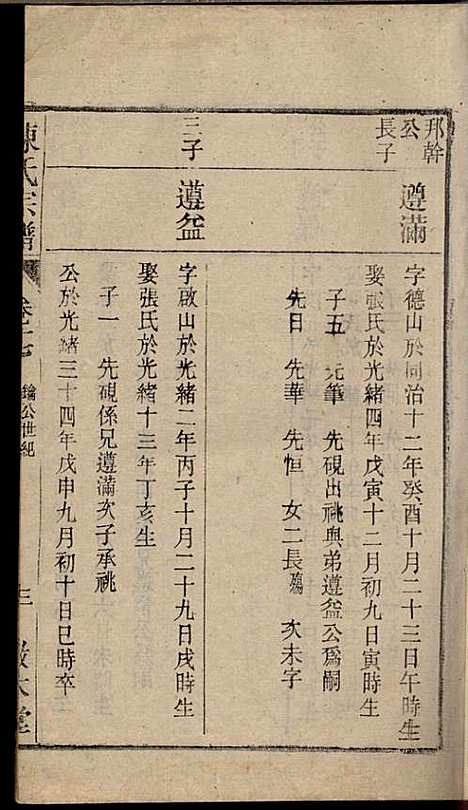 邦幹
公
長子
遵滿
字德山於同治十二年癸酉十月二十三日午時生
娶張氏於光緒四年戊寅十二月初九日寅時生
子五 先筆 先硯出祧與弟遵益公爲嗣
先日 先華 先恒 女二長殤 次未字
三子
遵益
字啟山於光緒二年丙子十月二十九日戌時生
娶張氏於光緒十三年丁亥生
子一 先硯係兄遵滿次子承祧
公於光緒三十四年戊申九月初十日巳時卒
陳氏宗譜
卷之七
公世紀